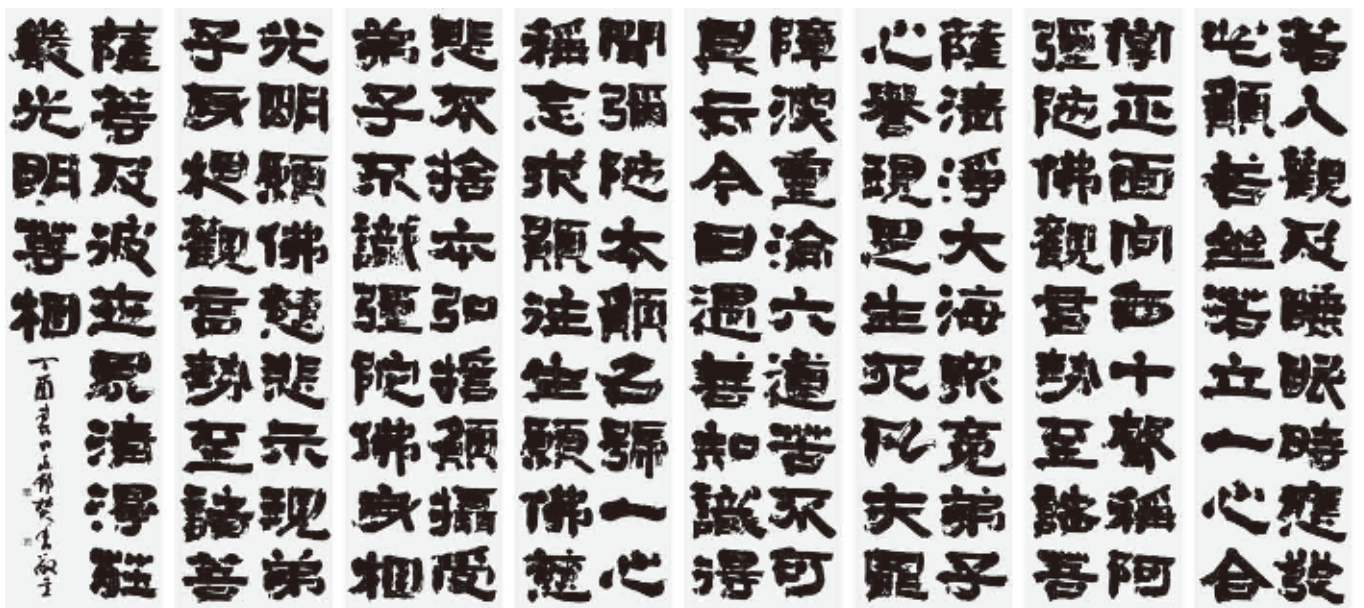 若入觀及睡眠時應發
此願者坐若立一心合
正面向西十聲稱阿
彌陀佛觀音勢至諸菩
薩清淨大海眾竟弟子
心譽現是生死凡夫罪
障深重淪六道苦不可
具云今日遇善知識得
聞彌陀本願名號一心
稱念求願往生願佛慈
悲不捨本弘誓願攝受
弟子不識彌陀佛身相
光明願佛慈悲示現弟
子身相觀音勢至諸菩
薩等及彼世界清淨莊
嚴光明等相
丁酉